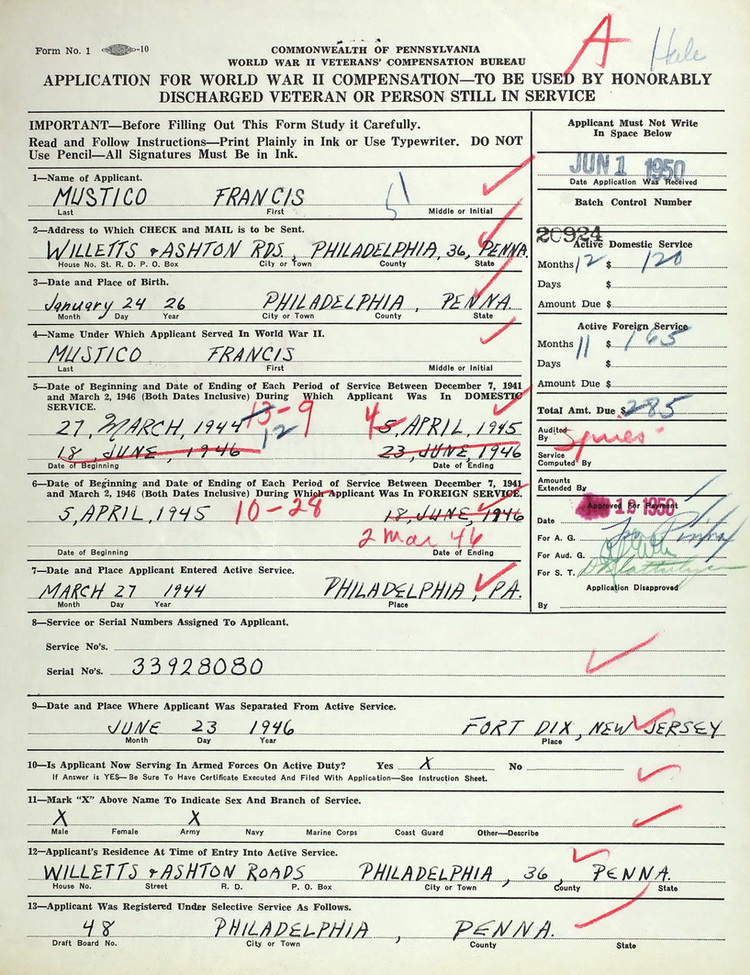 Form No. 1 -10
COMMONWEALTH OF PENNSYLVANIA
WORLD WAR II VETERANS' COMPENSATION BUREAU
A
Hale
APPLICATION FOR WORLD WAR II COMPENSATION—TO BE USED BY HONORABLY
DISCHARGED VETERAN OR PERSON STILL IN SERVICE
IMPORTANT—Before Filling Out This Form Study it Carefully.
Read and Follow Instructions—Print Plainly in Ink or Use Typewriter. DO NOT
Use Pencil—All Signatures Must Be in Ink.
1—Name of Applicant.
MUSTICO FRANCIS
Last First Middle or Initial
2—Address to Which CHECK and MAIL is to be Sent.
WILLETTS & ASHTON RDS, PHILADELPHIA, 36, PENNA.
House No. St. R. D. P. O. Box City or Town County State
3—Date and Place of Birth.
January 24 26 PHILADELPHIA, PENNA.
Month Day Year City or Town County State
4—Name Under Which Applicant Served In World War II.
MUSTICO FRANCIS
Last First Middle or Initial
5—Date of Beginning and Date of Ending of Each Period of Service Between December 7, 1941
and March 2, 1946 (Both Dates Inclusive) During Which Applicant Was In DOMESTIC
SERVICE.
27, MARCH, 1944 13-9 4 5, APRIL, 1945
18, JUNE, 1946 12 23, JUNE, 1946
Date of Beginning Date of Ending
6—Date of Beginning and Date of Ending of Each Period of Service Between December 7, 1941
and March 2, 1946 (Both Dates Inclusive) During Which Applicant Was In FOREIGN SERVICE.
5, APRIL, 1945 10-28 18, JUNE, 1946
2 Mar 46
Date of Beginning Date of Ending
7—Date and Place Applicant Entered Active Service.
MARCH 27 1944 PHILADELPHIA, PA.
Month Day Year Place
Applicant Must Not Write
In Space Below
JUN 1 1950
Date Application Was Received
Batch Control Number
20924
Active Domestic Service
Months 12 $ 120
Days $
Amount Due $
Active Foreign Service
Months 11 $ 165
Days $
Amount Due $
Total Amt. Due $ 285
Audited
By
Service
Computed By
Amounts
Extended By
Approved For Payment
Date 10 1950
For A. G.
For Aud. G.
For S. T.
Application Disapproved
By
8—Service or Serial Numbers Assigned To Applicant.
Service No's.
Serial No's. 33928080
9—Date and Place Where Applicant Was Separated From Active Service.
JUNE 23 1946 FORT DIX, NEW JERSEY
Month Day Year Place
10—Is Applicant Now Serving In Armed Forces On Active Duty? Yes X No
If Answer is YES—Be Sure To Have Certificate Executed And Filed With Application—See Instruction Sheet.
11—Mark "X" Above Name To Indicate Sex and Branch of Service.
X X
Male Female Army Navy Marine Corps Coast Guard Other—Describe
12—Applicant's Residence At Time of Entry Into Active Service.
WILLETTS & ASHTON ROADS PHILADELPHIA, 36, PENNA.
House No. Street R. D. P. O. Box City or Town County State
13—Applicant Was Registered Under Selective Service As Follows.
48 PHILADELPHIA, PENNA.
Draft Board No. City or Town County State